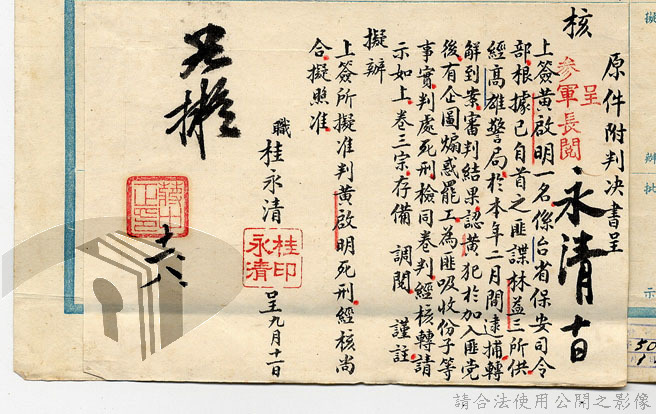 原件附判決書呈
核
呈
參軍長閱
永清 十日
上簽黃啟明一名係台省保安司令
部根據已自首之匪諜林益三所供
經高雄警局於本年二月間逮捕轉
解到案審判結果認黃犯於加入匪党
後有企圖煽惑罷工為匪吸收份子等
事實判處死刑檢同卷判經核轉請
示如上卷三宗存備 調閱 謹註
擬辦
上簽所擬准判黃啟明死刑經核尚
合擬照准
職 桂永清
桂印永清
呈九月十一日
如擬
蔣中正印
辦
批
示
50
請合法使用公開之影像